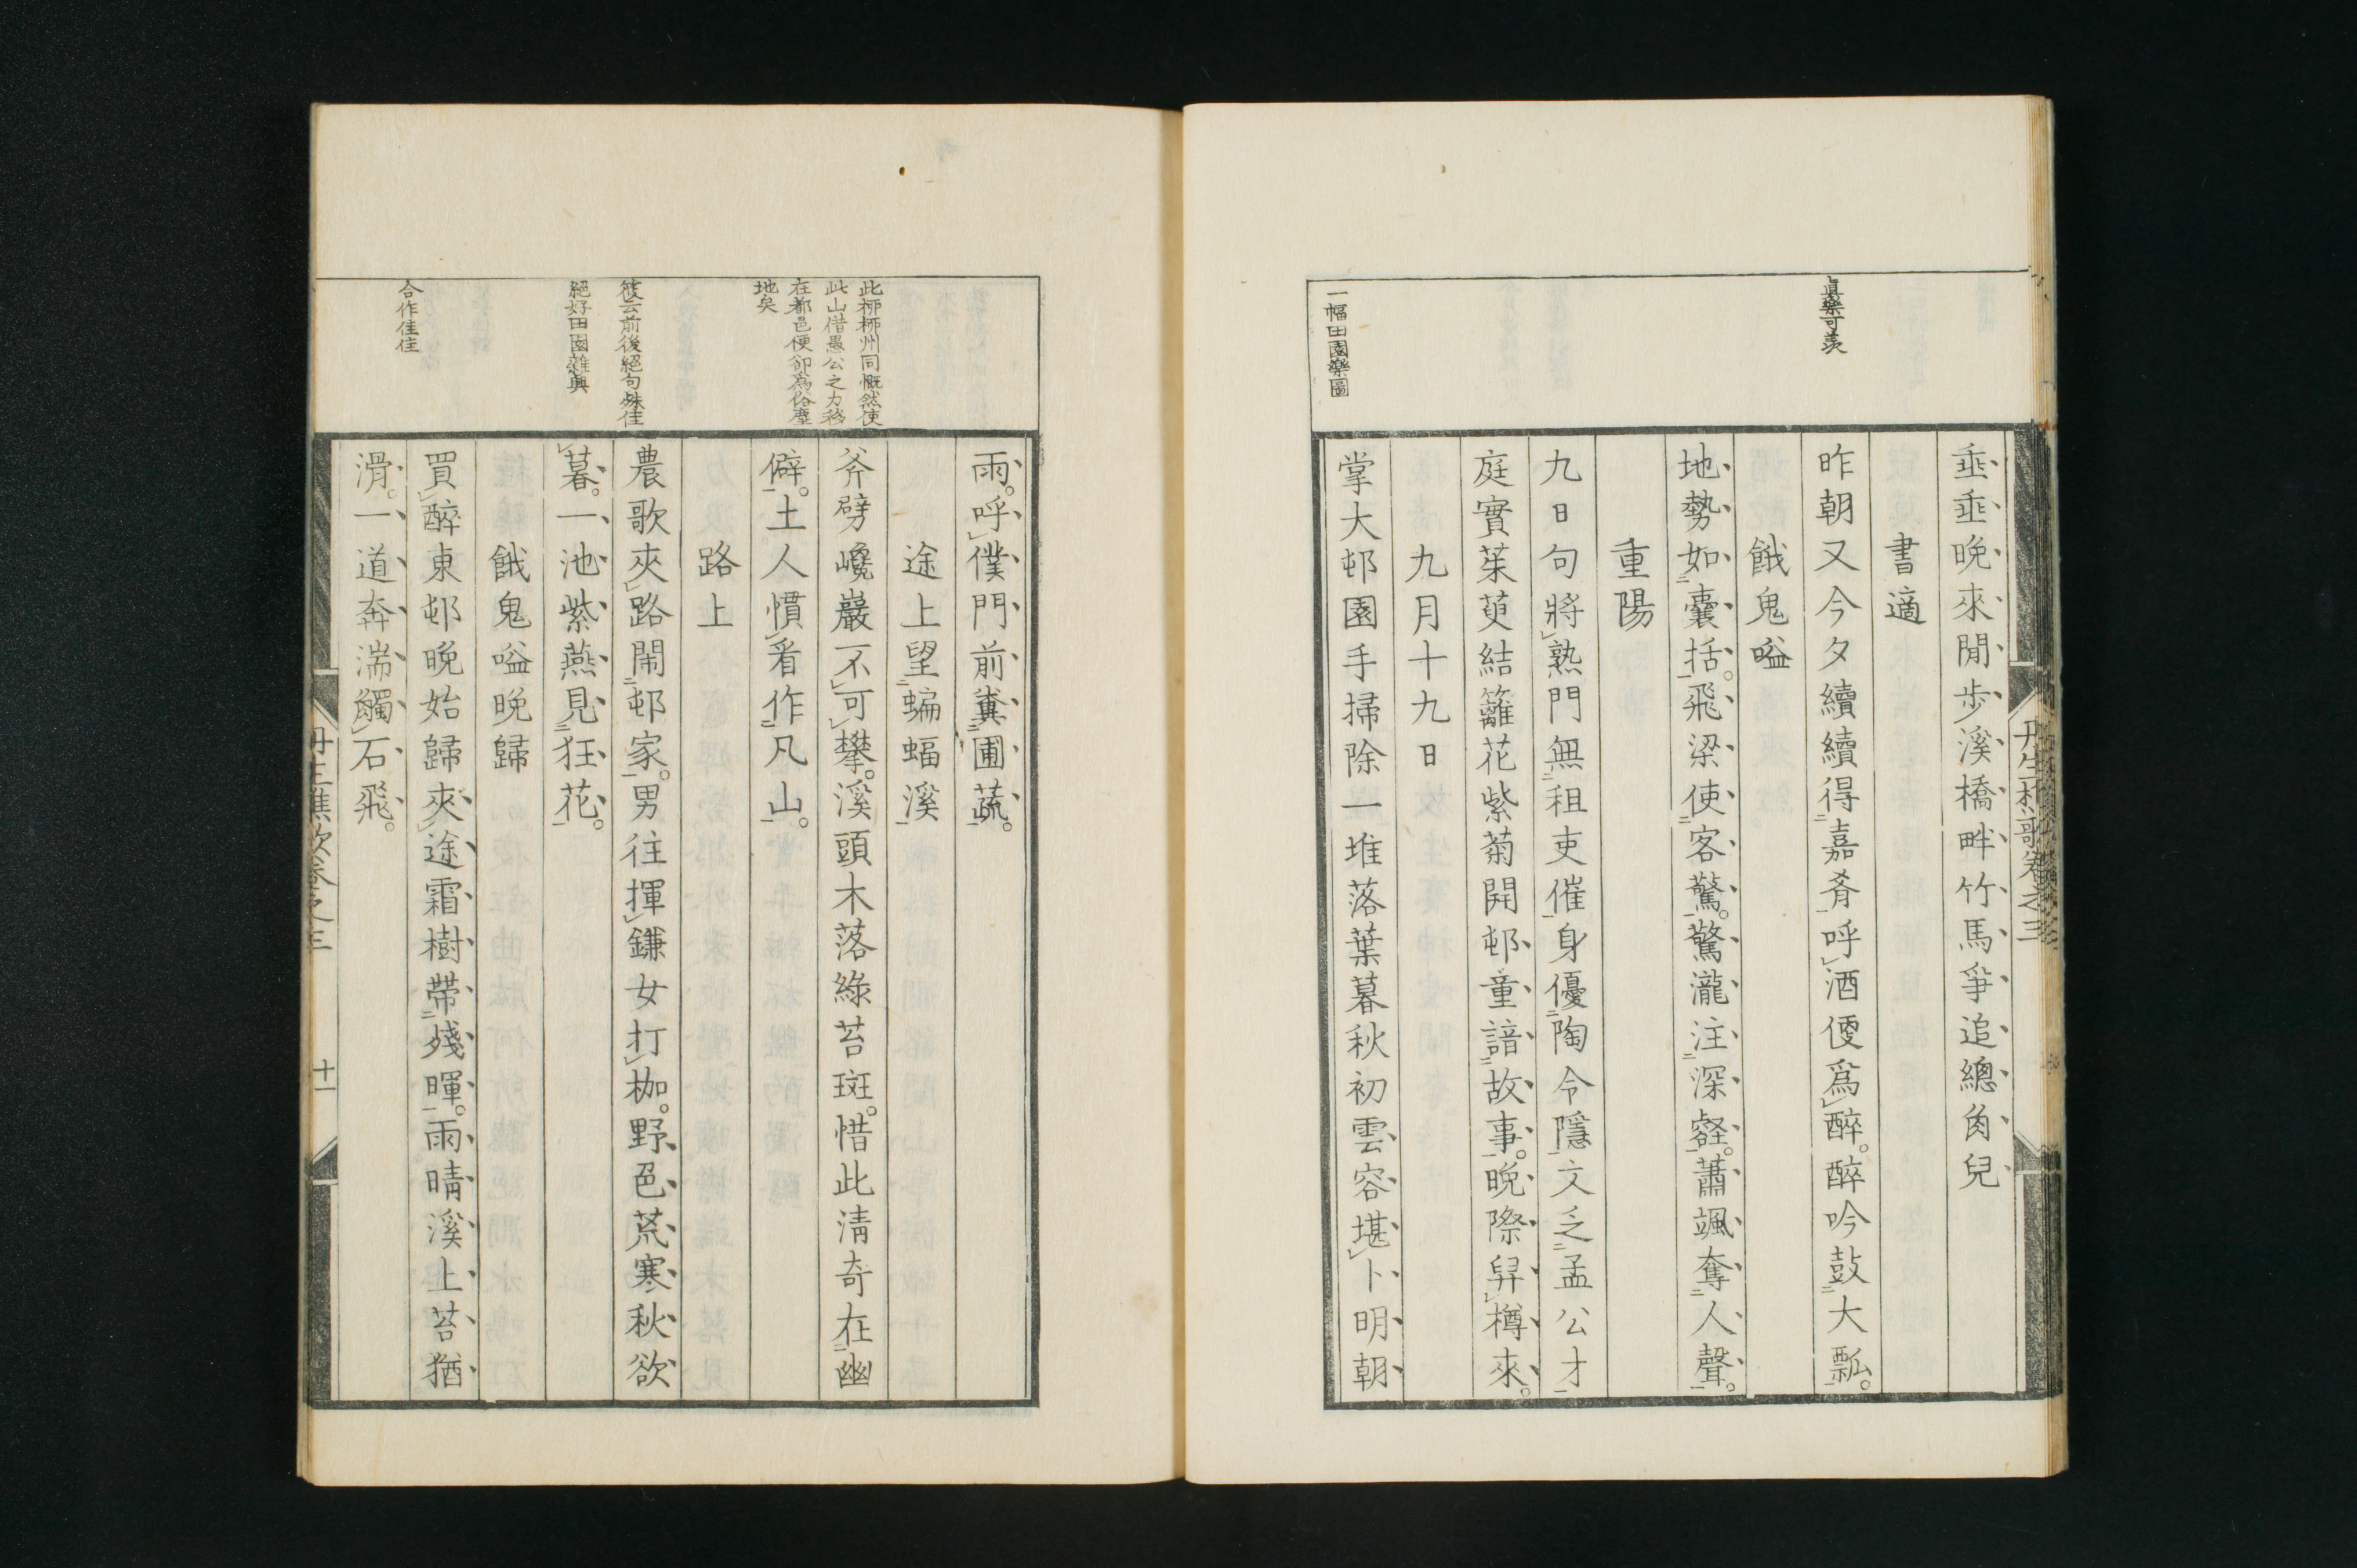 眞樂可羨
一幅田園樂圖
垂垂晩來閒歩溪橋畔竹馬爭追總角兒
書適
昨朝又今夕續續得嘉肴呼酒便爲醉。醉吟鼓大瓢。
餓鬼嗌
地勢如嚢括。飛梁使客驚。驚瀧注深壑。蕭颯奪人聲。
重陽
九日句將熟門無租吏催身優陶令隱文乏孟公才
庭實茱萸結籬花紫菊開邨童諳故事。晩際舁樽來。
九月十九日
掌大邨園手掃除一堆落葉暮秋初雲容堪卜明朝
丹生樵歌卷之三
此桞桞州同慨然使
此山借愚公之力移
在都邑便卻爲俗塵
地矣
筱云前後絕句殊佳
絕好田園雜興
合作佳佳
雨。呼僕門前糞圃蔬。
途上望蝙蝠溪
斧劈巉巖不可攀。溪頭木落綠苔斑。惜此淸奇在幽
僻。土人慣看作凡山。
路上
農歌夾路鬧邨家。男往揮鎌女打枷。野色荒寒秋欲
暮。一池紫燕見狂花。
餓鬼嗌晩歸
買醉東邨晩始歸夾途霜樹帶殘暉。雨晴溪上苔猶
滑。一道奔湍觸石飛。
丹生樵歌卷之三
十一